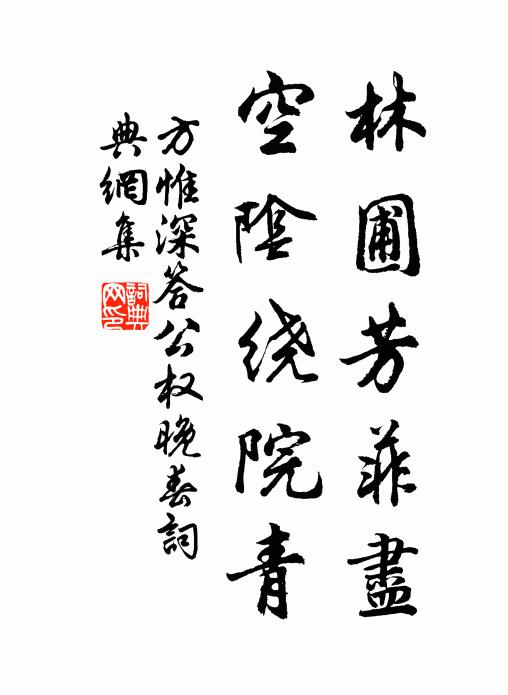 林圃芳菲盡
空陰绕院青
方惟深答公权晚春詞
典網集
詞典
网印